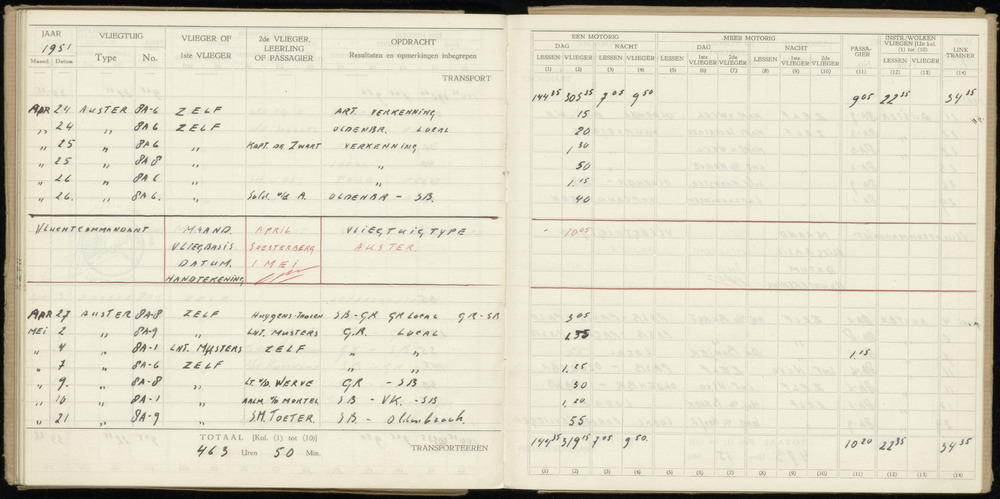 JAAR VLIEGTUIG VLIEGER OF 1ste VLIEGER 2de VLIEGER, LEERLING OF PASSAGIER OPDRACHT Resultaten en opmerkingen inbegrepen
1951
Maand Datum Type No.
TRANSPORT
APR 24 AUSTER 8A-6 ZELF ART. VERKENNING
" 24 " 8A6 ZELF OLDENBR. LOCAL
" 25 " 8A6 " KAPT. DR ZWART VERKENNING
" 25 " 8A-8 " "
" 26 " 8A-6 "
" 26. " 8A6. " Sold. A. OLDENBR - SB.
VLUCHTCOMMANDANT MAAND. APRIL VLIEGTUIGTYPE
VLIEGBASIS SOESTERBERG AUSTER.
DATUM. 1 MEI
HANDTEKENING
APR 27 AUSTER 8A-8 ZELF Huygens SB-GR GR LOCAL GR-SB
MEI 2 " 8A-9 " LNT. MUSTERS G.R. LOCAL
" 4 " 8A-1 LNT. MUSTERS ZELF " "
" 7 " 8A-6 ZELF
" 9. " 8A-8 " LT. V/D. WERVE GR - SB
" 10 " 8A-1 " AALM. V/D MORTEL SB - VK. - SB
" 21 " 8A-9 " S.M. TOETER. SB -
TOTAAL [Kol. (1) tot (10)] TRANSPORTEEREN
463 Uren 50 Min.
EEN MOTORIG MEER MOTORIG PASSA-GIER INSTR./WOLKEN VLIEGEN [Uit kol. (1) tot (10) LINK TRAINER
DAG NACHT DAG NACHT
LESSEN VLIEGER LESSEN VLIEGER LESSEN 1ste VLIEGER 2de VLIEGER LESSEN 1ste VLIEGER 2de VLIEGER LESSEN VLIEGER
(1) (2) (3) (4) (5) (6) (7) (8) (9) (10) (11) (12) (13) (14)
144 35 305 35 7 05 9 50 9 05 22 35 34 35
15
20
1 30
50
1.15
40
- 10 05
3 05
1.35
1.15
1.25
30
1.20
55
144 35 319 15 7 05 9 50. 10 20 22 35 34 35
(1) (2) (3) (4) (5) (6) (7) (8) (9) (10) (11) (12) (13) (14)